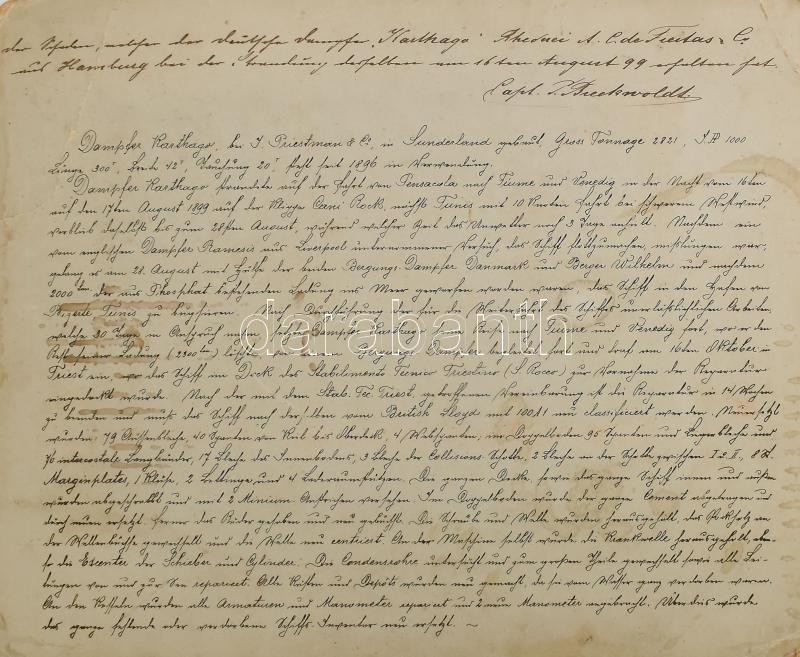 der Schäden, welcher der deutsche Dampfer "Karthago" Rhederei A. C. de Freitas & Co
aus Hamburg bei der Strandung desselben am 16ten August 99 erhalten hat.
Capt.
Dampfer Karthago, bei J. Priestman & Co, in Sunderland gebaut, Gross Tonnage 2821, 1000
Länge 300', Breite 42', 20', steht seit 1896 in Verwendung.
Dampfer Karthago strandete auf der Fahrt von Pensacola nach Fiume und Venedig in der Nacht vom 16ten
auf den 17ten August 1899 auf der Klippe Cani Rock, nächst Tunis mit 10 Knoten Fahrt bei schwerem Westwind,
verblieb daselbst bis zum 28sten August, während welcher Zeit das Unwetter noch 3 Tage anhielt. Nachdem ein
vom englischen Dampfer Ramesis aus Liverpool unternommener Versuch, das Schiff flottzumachen, misslungen war,
gelang es am 28. August mit Hülfe der beiden Bergungs-Dampfer Danmark und Berger Wilhelm und nachdem
2000 der aus Phosphat bestehenden Ladung ins Meer geworfen worden waren, das Schiff in den Hafen von
Tunis zu bugsieren. Nach Durchführung der für die Weiterfahrt des Schiffes unerlässlichsten Arbeiten,
welche 30 Tage in Anspruch nahm, setzte Dampfer Karthago seine Reise nach Fiume und Venedig fort, wo er den
Rest seiner Ladung (2300) löschte, von einem Bergungs-Dampfer begleitet und traf am 16ten Oktober in
Triest ein, wo das Schiff im Dock des Stabilimento Tecnico Triestino (S. Rocco) zur Vornahme der Reparatur
eingedockt wurde. Nach der mit dem Stab. Tec. Triest. getroffenen Vereinbarung ist die Reparatur in 14 Wochen
zu beenden und muss das Schiff nach derselben vom British Lloyd mit 100A1 neu classificiert werden. Neuersetzt
wurden: 79 Aussenbleche, 40 Spanten von Kiel bis Oberdeck, 4 Webspanten, im Doppelboden 95 Spanten und und
76 intercostale Langbänder, 17 Bleche des Innenbodens, 3 Bleche der Collisions-Schotte, 2 Bleche an der Schotte zwischen I & II, 8 St.
Marginplates, 1 Klüse, 2 Bettinge und 4 . Die ganzen Decke, sowie das ganze Schiff innen und aussen
wurden abgeschrabbt und mit 2 Minium Anstrichen versehen. Im Doppelboden wurde der ganze Cement abgetragen und
durch neuen ersetzt, ferner das Ruder gehoben und neu gebüchst. Die Schraube und Welle wurden herausgeholt, das Pockholz an
der Wellenbüchse gewechselt und die Welle neu centriert. An der Maschine selbst wurde die Krankwelle herausgeholt, eben-
so die Excenter der Schieber und Cylinder. Die Condensrohre untersucht und zum grossen Theile gewechselt sowie alle Lei-
tungen von und zur See repariert. Alle Kisten und Depôts wurden neu gemacht, da sie vom Wasser ganz verdorben waren.
An den Kesseln wurden alle Armaturen und Manometer repariert und 2 neue Manometer angebracht. Überdies wurde
das ganze fehlende oder verdorbene Schiffs-Inventar neu ersetzt. ~
darabanth